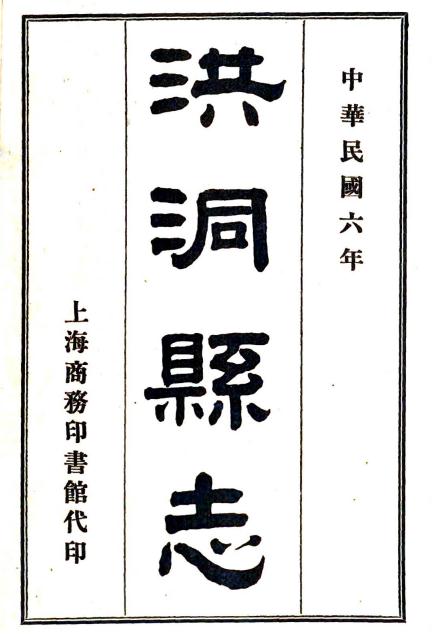 中華民國六年
洪洞縣志
上海商務印書館代印